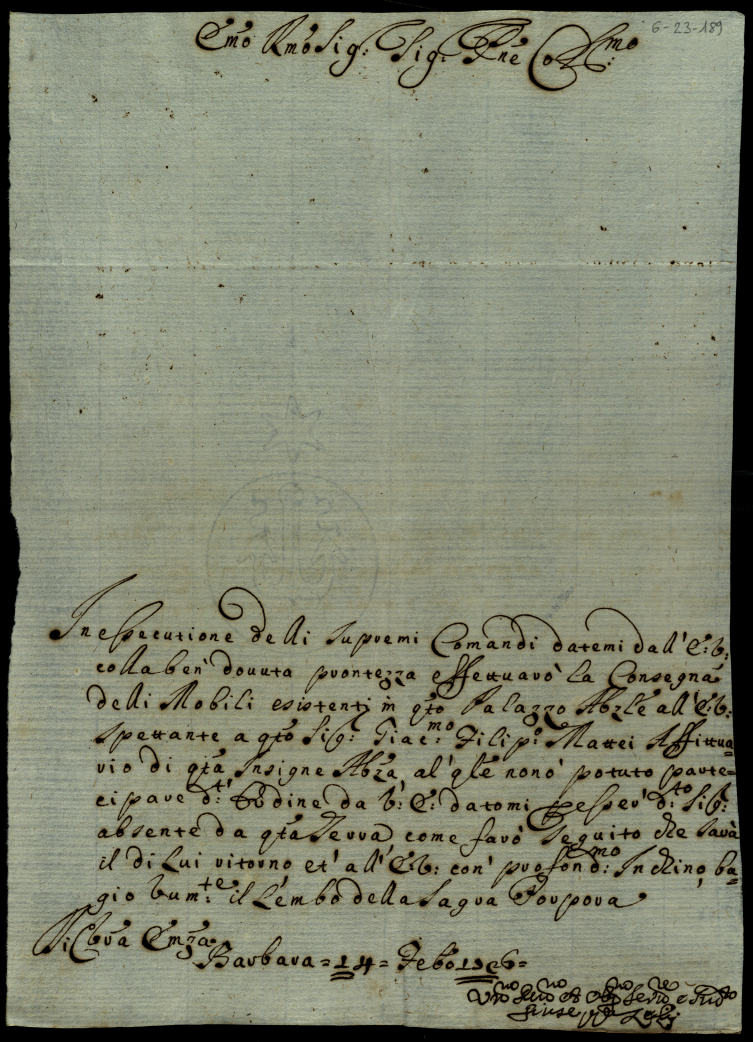 6-23-189
Emo Rmo Sig: Sig: Pne Colmo:
In esecutione delli supremi Comandi datemi dall' E: V:
colla ben' douuta prontezza effettuarò la Consegna
delli Mobili esistenti in qto Palazzo Abzle all' E: V:
spettante a qto Sig: Giac:mo Filip:o Mattei Affittua=
rio di qta Insigne Abza, al' qle non ò potuto parte=
cipare d:to Ordine da V: E: datomi p esser' d:to Sig:
absente da qta Terra come farò seguito che sarà
il di Lui ritorno et' all' E: V: con' profond:mo Inchino ba=
gio hum:te il Lembo della Sagra Porpora
Di Vra Emza
Barbara = 14 = Febo
Giuseppe